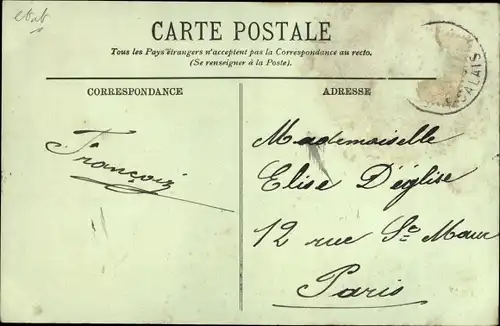 CARTE POSTALE
Tous les Pays étrangers n'acceptent pas la Correspondance au recto.
(Se renseigner à la Poste).
CORRESPONDANCE
ADRESSE
CALAIS
François
Mademoiselle
Elise Déglise
12 rue St. Maur
Paris